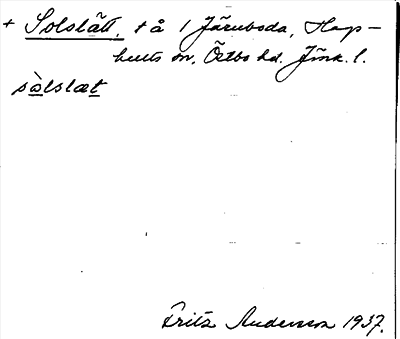 + Solslätt, t å 1 Järnboda, Hag-
hults sn, Östbo hd. Jönk. l.
sòlslæt
Fritz Andersson 1937.